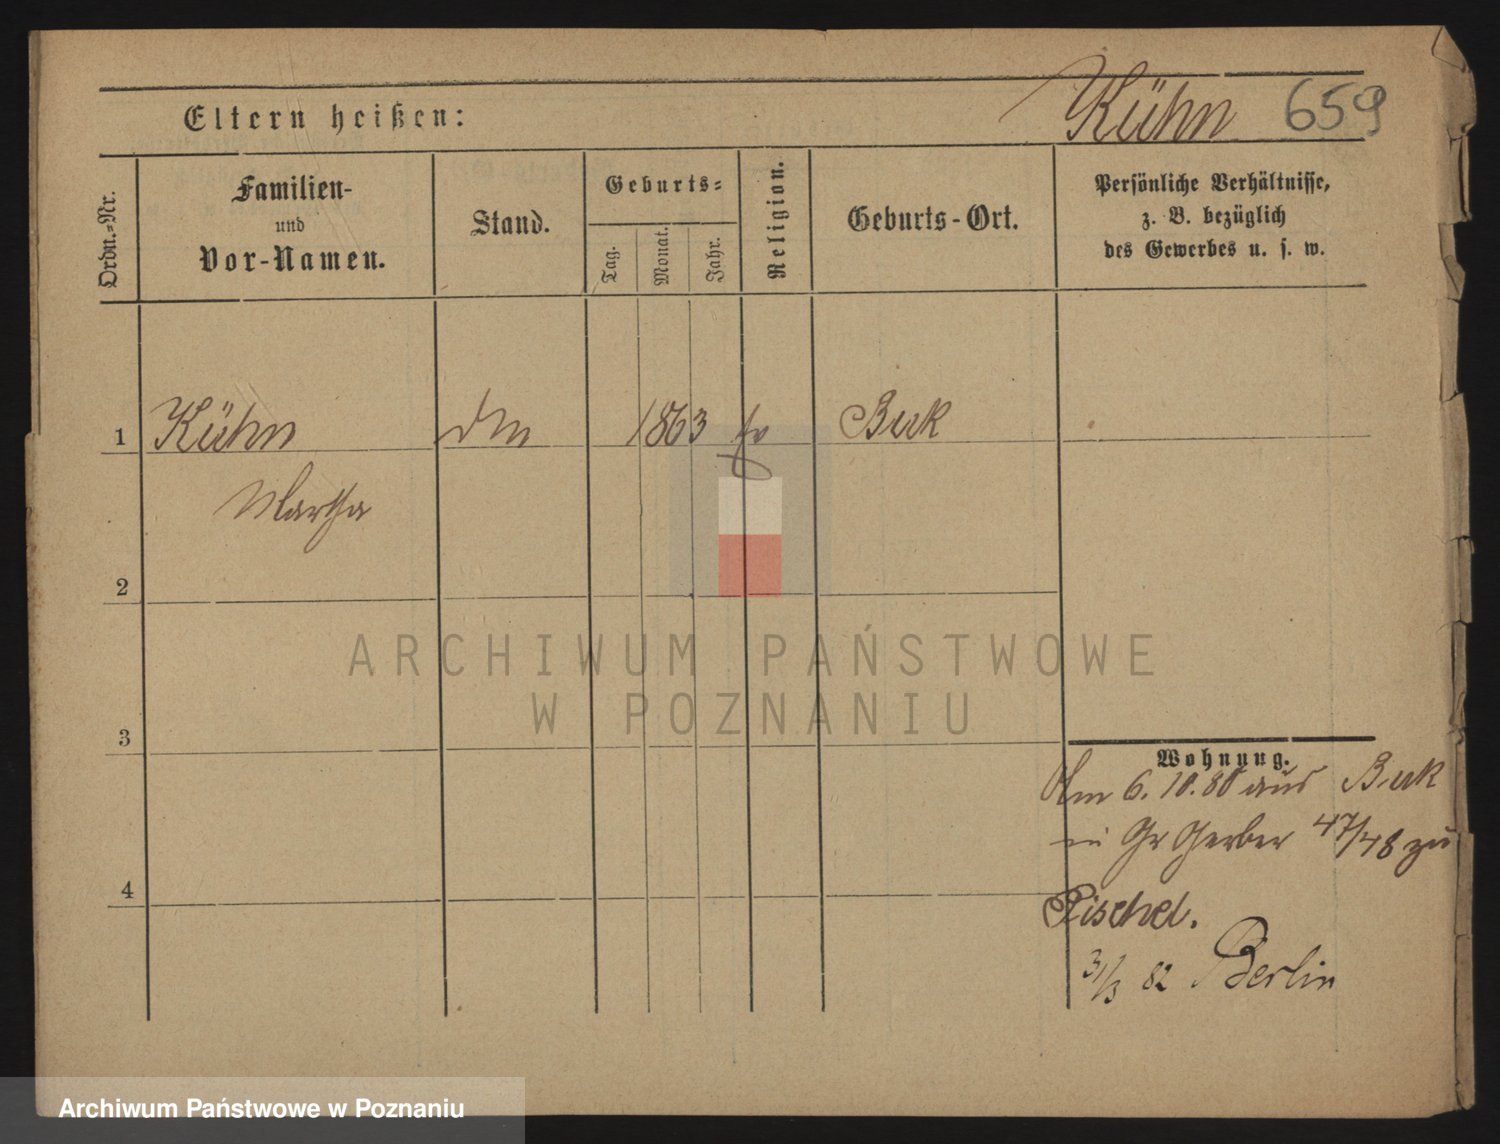 Eltern heißen:
Kühn 659
Ordn.-Nr.
Familien-
und
Vor-Namen.
Stand.
Geburts-
Tag.
Monat.
Jahr.
Religion.
Geburts-Ort.
Persönliche Verhältnisse,
z. B. bezüglich
des Gewerbes u. s. w.
1 Kühn 1863 Buk
Martha
2
3
4
Wohnung.
Am 6.10.80 aus Buk
in Gr Gerber 47/48 zu
Pischel.
31/3 82 Berlin
ARCHIWUM PAŃSTWOWE
W POZNANIU
Archiwum Państwowe w Poznaniu